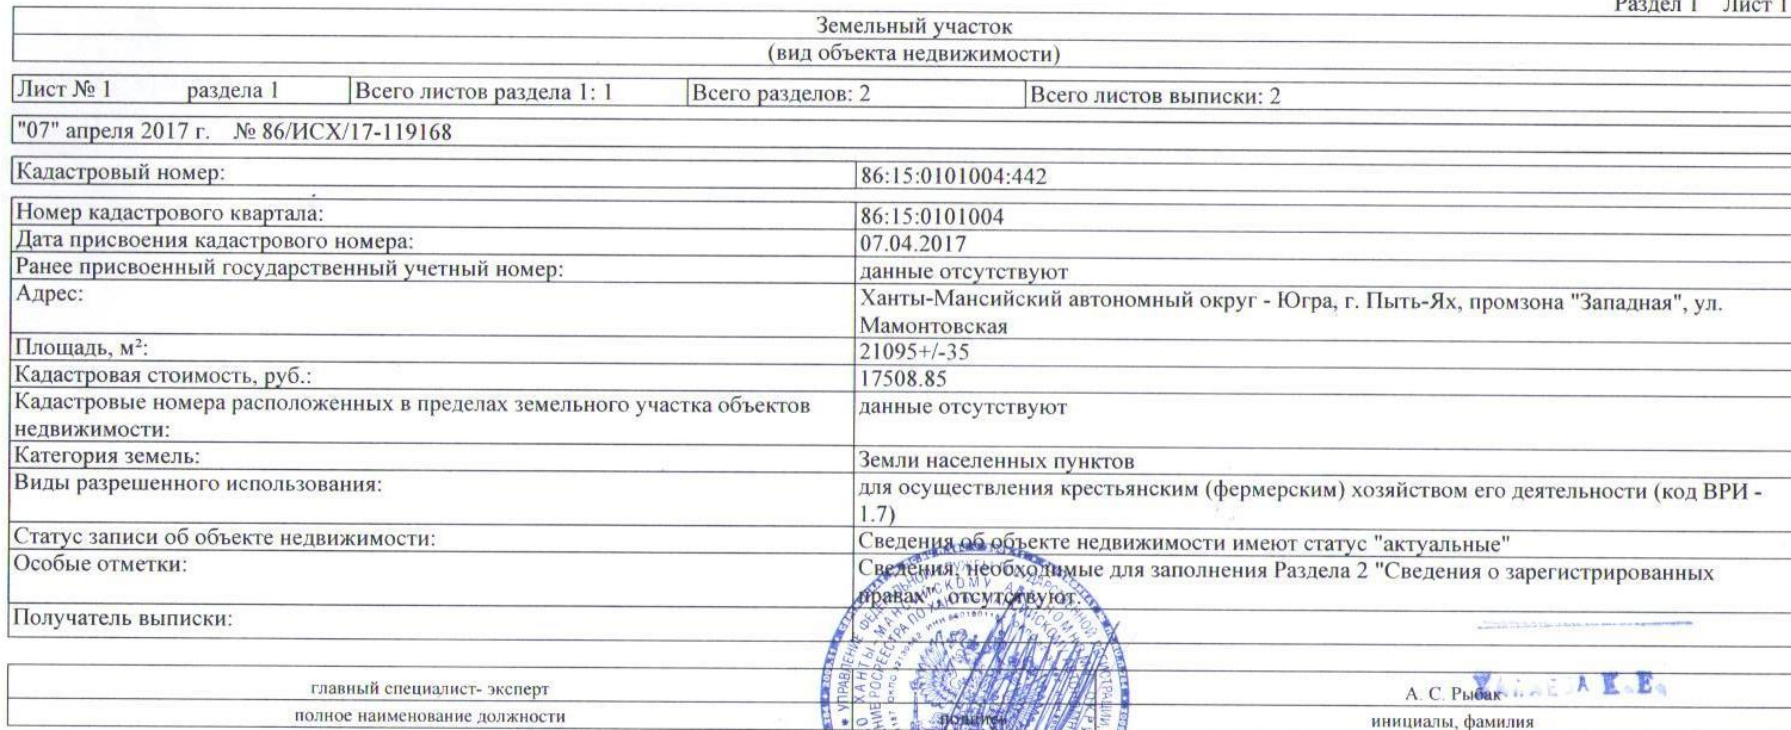 Раздел 1 Лист 1
Земельный участок
(вид объекта недвижимости)
Лист № 1 раздела 1 Всего листов раздела 1: 1 Всего разделов: 2 Всего листов выписки: 2
"07" апреля 2017 г. № 86/ИСХ/17-119168
Кадастровый номер: 86:15:0101004:442
Номер кадастрового квартала: 86:15:0101004
Дата присвоения кадастрового номера: 07.04.2017
Ранее присвоенный государственный учетный номер: данные отсутствуют
Адрес: Ханты-Мансийский автономный округ - Югра, г. Пыть-Ях, промзона "Западная", ул.
Мамонтовская
Площадь, м²: 21095+/-35
Кадастровая стоимость, руб.: 17508.85
Кадастровые номера расположенных в пределах земельного участка объектов данные отсутствуют
недвижимости:
Категория земель: Земли населенных пунктов
Виды разрешенного использования: для осуществления крестьянским (фермерским) хозяйством его деятельности (код ВРИ -
1.7)
Статус записи об объекте недвижимости: Сведения об объекте недвижимости имеют статус "актуальные"
Особые отметки: Сведения, необходимые для заполнения Раздела 2 "Сведения о зарегистрированных
правах", отсутствуют.
Получатель выписки:
главный специалист- эксперт А. С. Рыбак
полное наименование должности подпись инициалы, фамилия